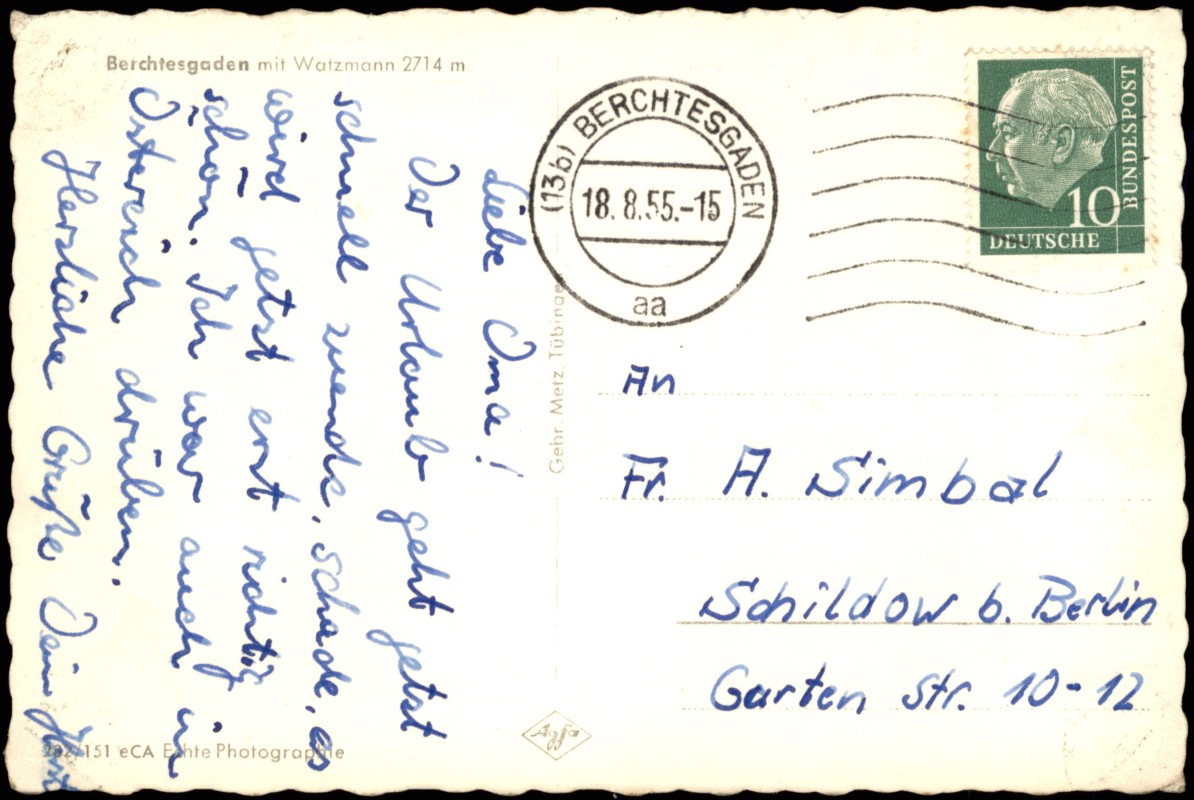 Berchtesgaden mit Watzmann 2714 m
Liebe Oma!
Der Urlaub geht jetzt
schnell zuende. Schade, es
wird jetzt erst richtig
schön. Ich war auch in
Östereich drüben.
Herzliche Grüße Dein Horst
282/151 eCA Echte Photographie
Gebr. Metz, Tübingen
Agfa
(13b) BERCHTESGADEN
18.8.55.-15
aa
10
BUNDESPOST
DEUTSCHE
An
Fr. A. Simbal
Schildow b. Berlin
Garten str. 10-12